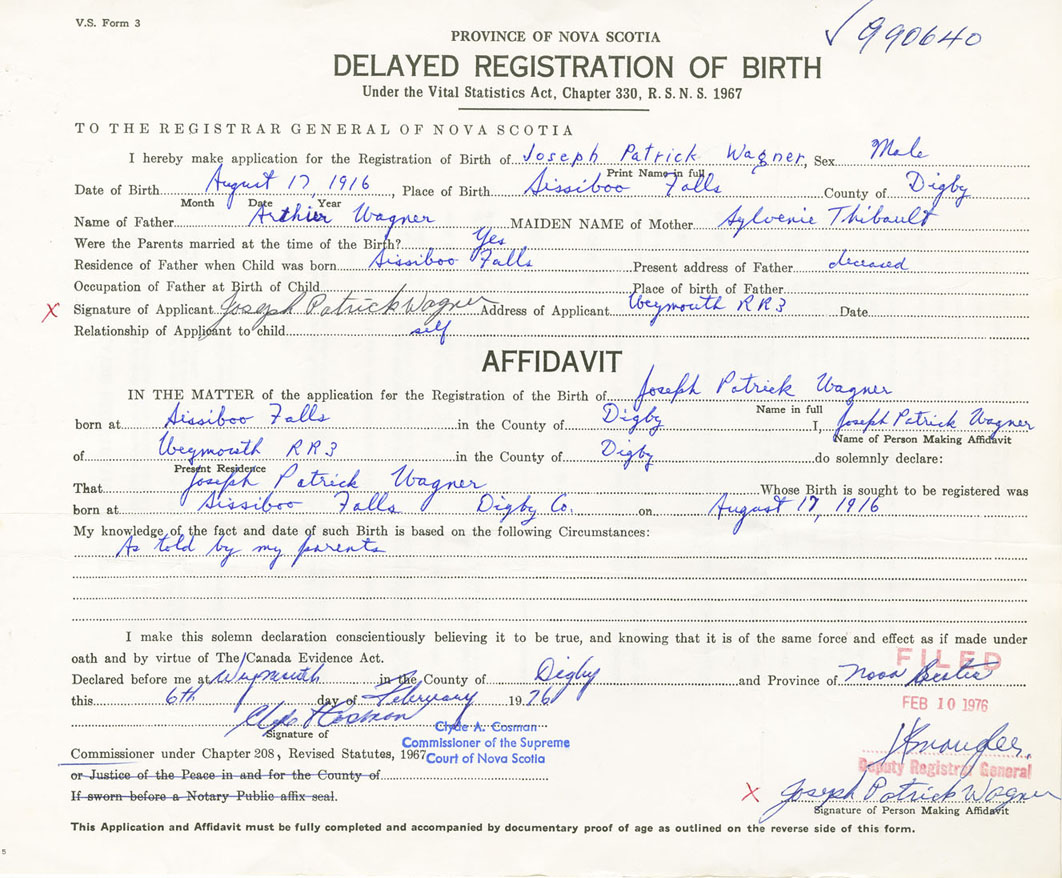 V.S. Form 3
990640
PROVINCE OF NOVA SCOTIA
DELAYED REGISTRATION OF BIRTH
Under the Vital Statistics Act, Chapter 330, R. S. N. S. 1967
TO THE REGISTRAR GENERAL OF NOVA SCOTIA
I hereby make application for the Registration of Birth of Joseph Patrick Wagner, Sex Male
Print Name in full
Date of Birth August 17, 1916, Place of Birth Sissiboo Falls County of Digby
Month Date Year
Name of Father Arthier Wagner MAIDEN NAME of Mother Sylvenie Thibault
Were the Parents married at the time of the Birth? Yes
Residence of Father when Child was born Sissiboo Falls Present address of Father deceased
Occupation of Father at Birth of Child Place of birth of Father
X Signature of Applicant Joseph Patrick Wagner Address of Applicant Weymouth RR3 Date
Relationship of Applicant to child self
AFFIDAVIT
IN THE MATTER of the application for the Registration of the Birth of Joseph Patrick Wagner
Name in full
born at Sissiboo Falls in the County of Digby I, Joseph Patrick Wagner
Name of Person Making Affidavit
of Weymouth RR3 in the County of Digby do solemnly declare:
Present Residence
That Joseph Patrick Wagner Whose Birth is sought to be registered was
born at Sissiboo Falls Digby Co. on August 17, 1916
My knowledge of the fact and date of such Birth is based on the following Circumstances:
As told by my parents
I make this solemn declaration conscientiously believing it to be true, and knowing that it is of the same force and effect as if made under
oath and by virtue of The Canada Evidence Act.
FILED
Declared before me at Weymouth in the County of Digby and Province of Nova Scotia
this 6th day of February 1976
FEB 10 1976
Clyde A. Cosman
Signature of
Clyde A. Cosman
Commissioner of the Supreme
Court of Nova Scotia
Commissioner under Chapter 208, Revised Statutes, 1967
Deputy Registrar General
or Justice of the Peace in and for the County of
If sworn before a Notary Public affix seal.
X Joseph Patrick Wagner
Signature of Person Making Affidavit
This Application and Affidavit must be fully completed and accompanied by documentary proof of age as outlined on the reverse side of this form.
5